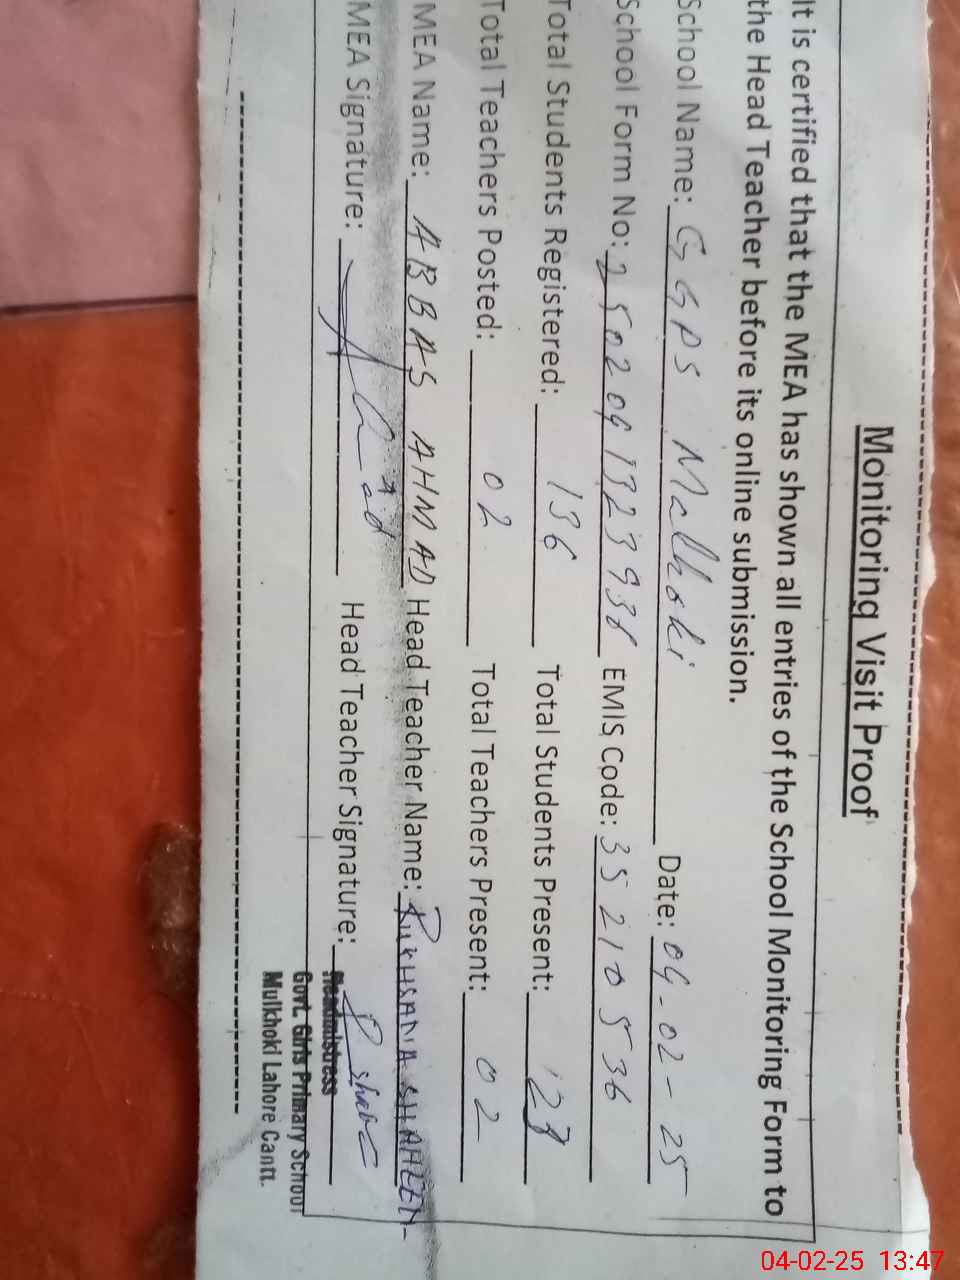 Monitoring Visit Proof
It is certified that the MEA has shown all entries of the School Monitoring Form to
the Head Teacher before its online submission.
School Name: GGPS Malhoki Date: 04-02-25
School Form No: 2502041323938 EMIS Code: 35210536
Total Students Registered: 136 Total Students Present: 128
Total Teachers Posted: 02 Total Teachers Present: 02
MEA Name: ABBAS AHMAD Head Teacher Name: RUKHSANA SHAHEEN
MEA Signature: Head Teacher Signature:
Headmistress
Govt. Girls Primary School
Mulkhoki Lahore Cantt.
04-02-25 13:47